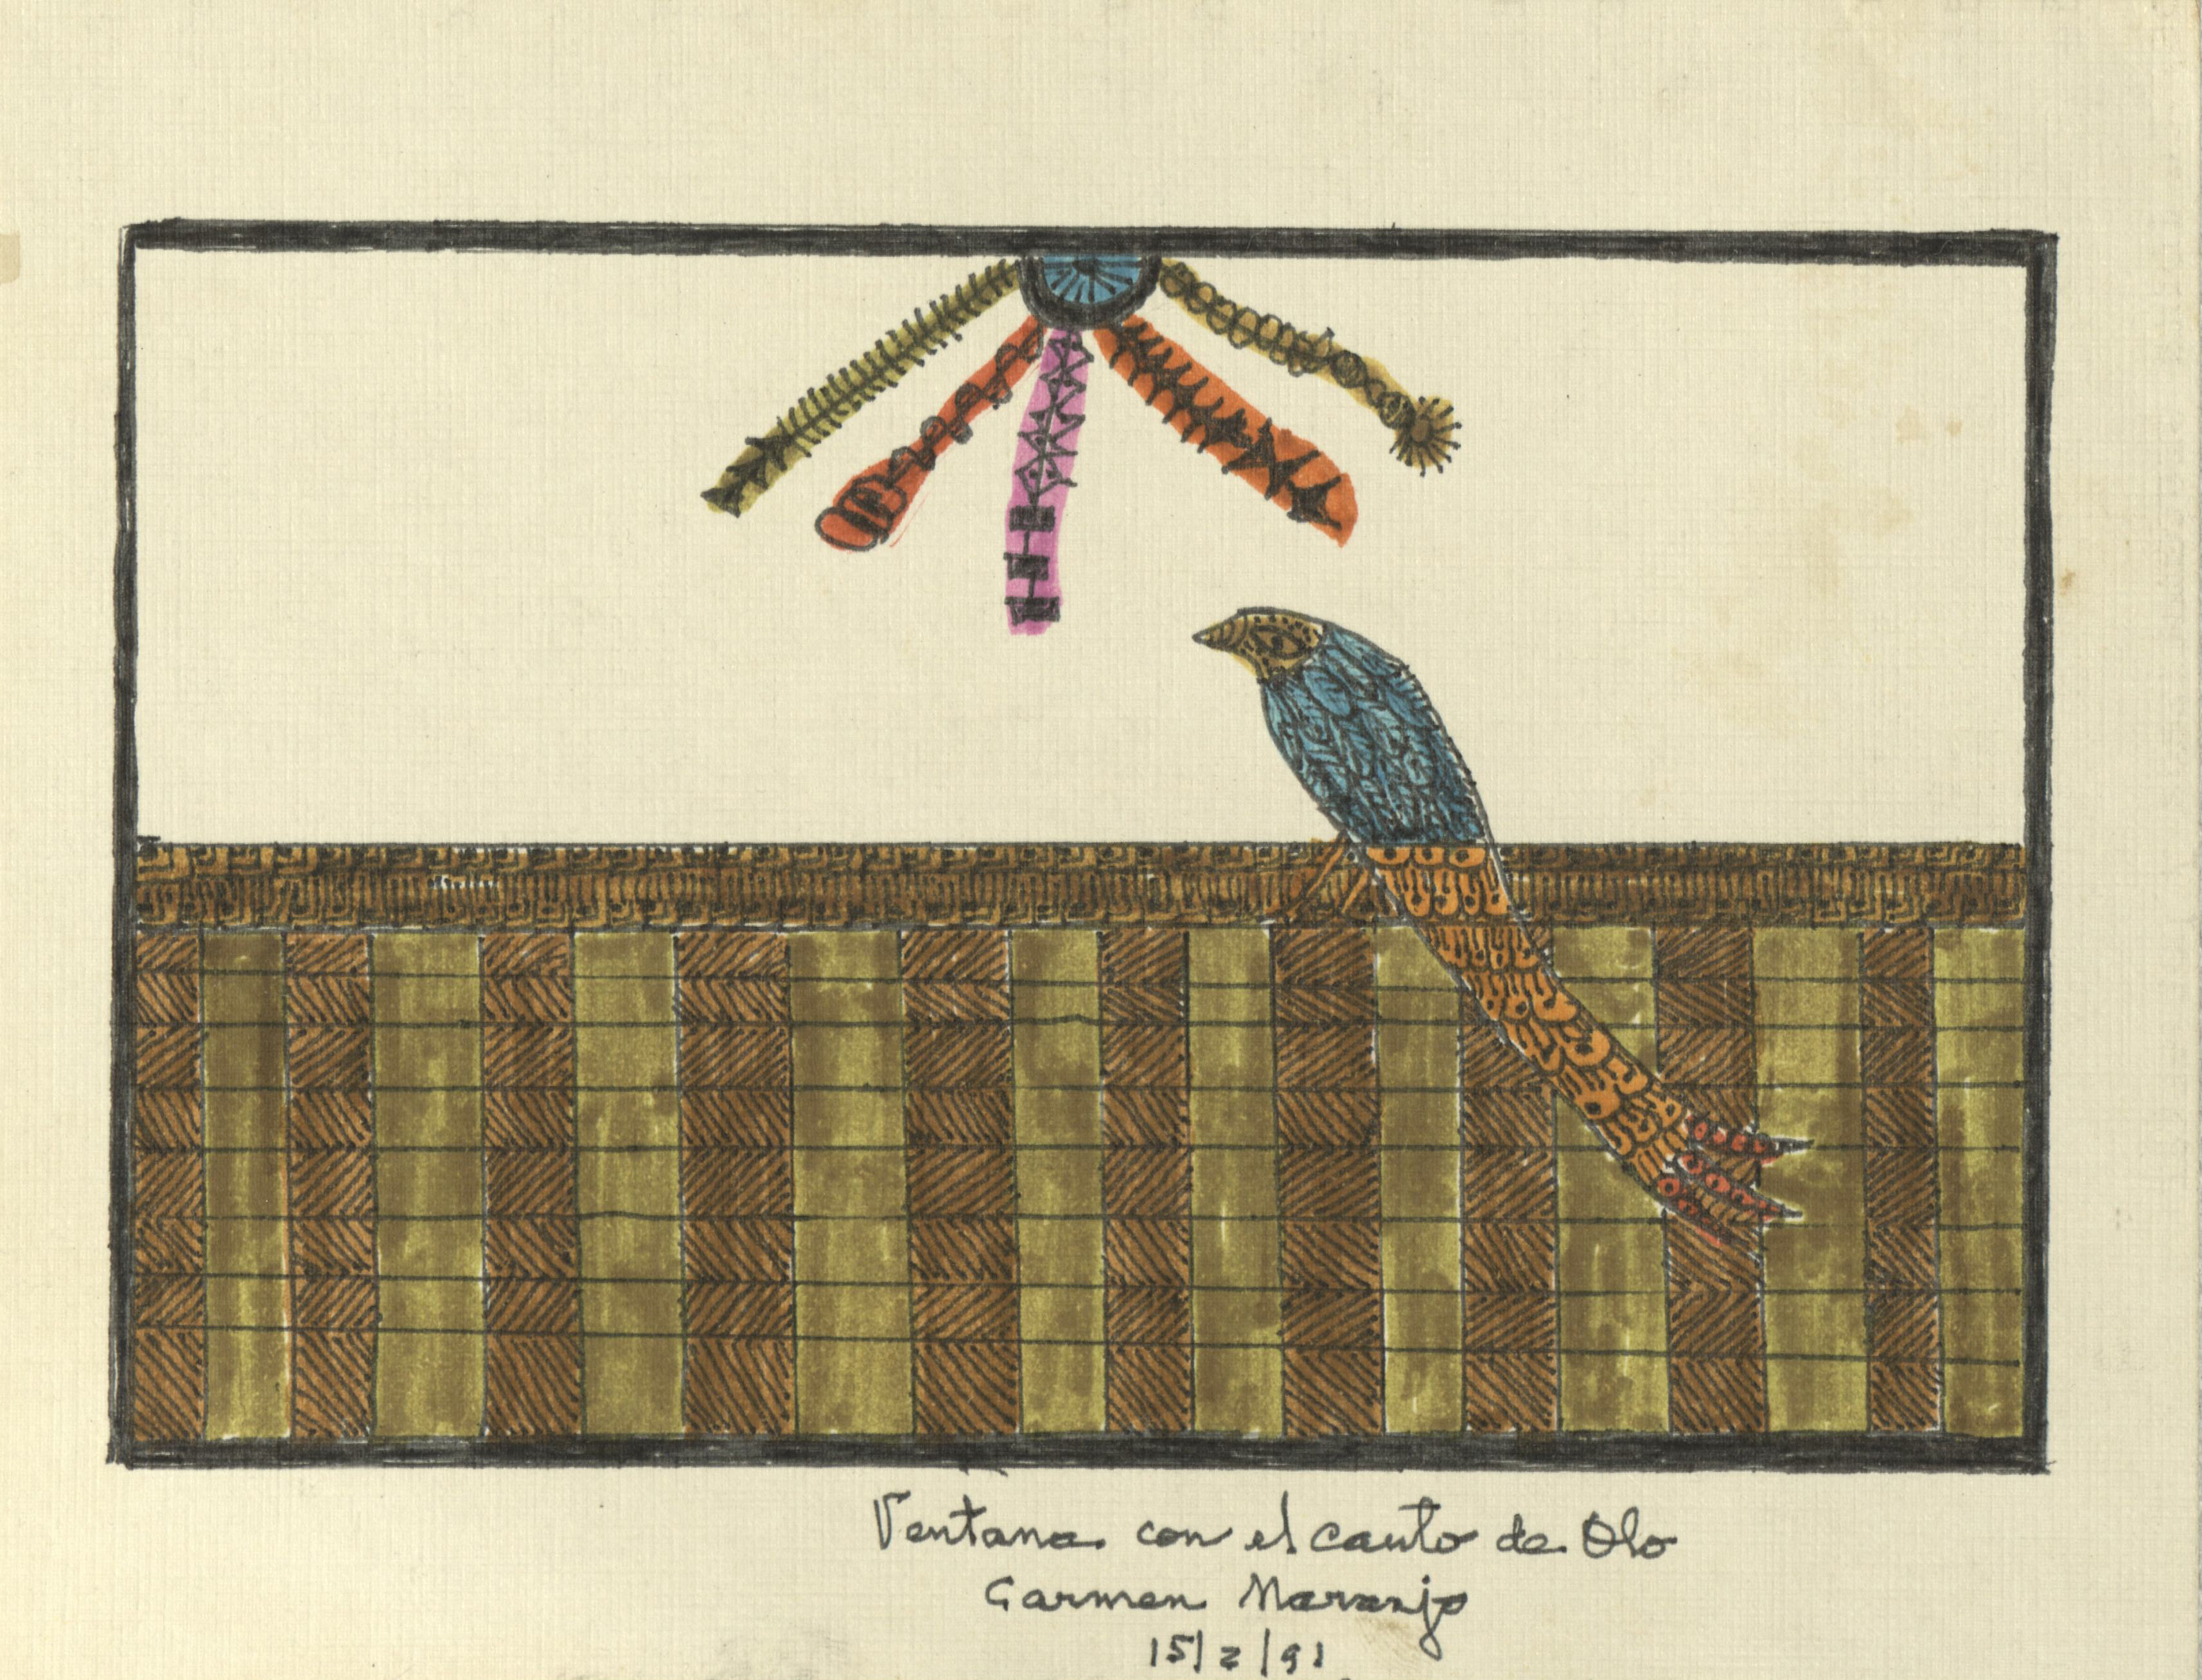 Ventana con el canto de Olo
Carmen Naranjo
15/2/91